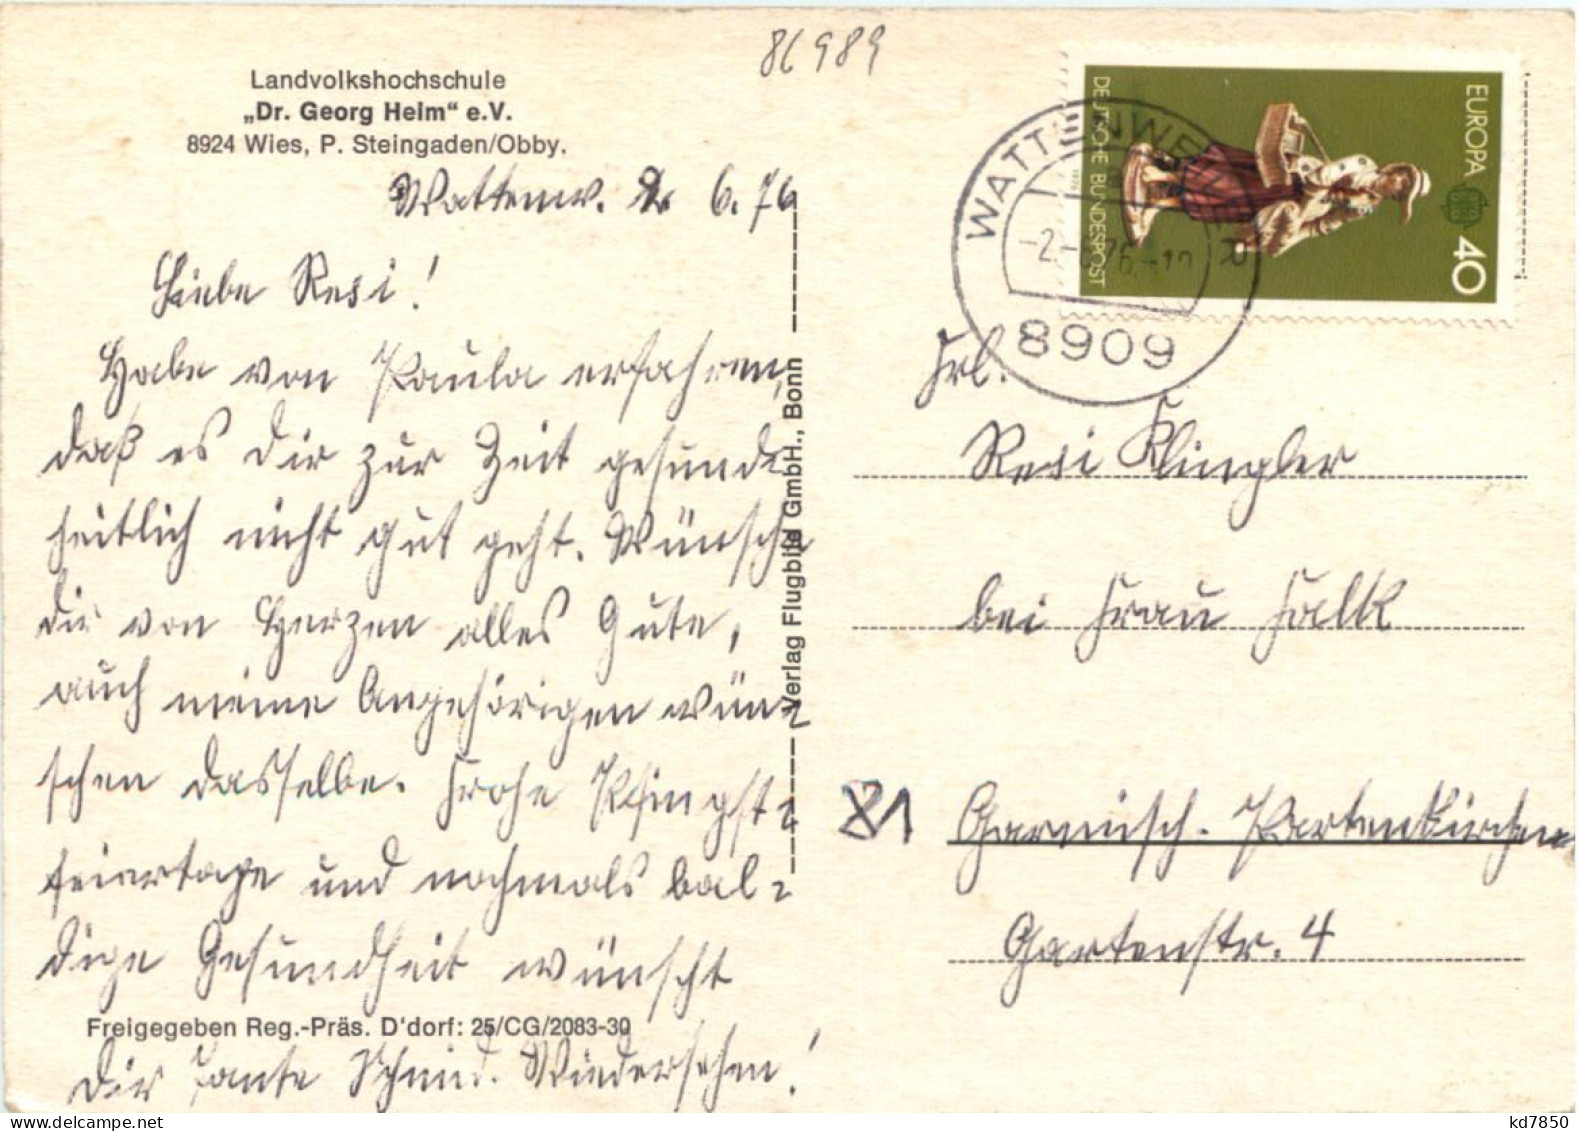 86989
Landvolkshochschule
„Dr. Georg Heim“ e.V.
8924 Wies, P. Steingaden/Obby.
Wattenw. 2. 6. 76
Liebe Resi!
Habe von Paula erfahren,
daß es Dir zur Zeit gesund-
heitlich nicht gut geht. Wünsche
Dir von Herzen alles Gute,
auch meine Angehörigen wün-
schen dasselbe. Frohe Pfingst-
feiertage und nochmals bal-
dige Gesundheit wünscht
Freigegeben Reg.-Präs. D'dorf: 25/CG/2083-30
Dir Tante Schmid. Wiedersehen!
Verlag Flugbild GmbH., Bonn
DEUTSCHE BUNDESPOST
EUROPA
40
WATTENWEILER
-2.-6.76.-
8909
Frl.
Resi Klingler
bei Frau Falk
81 Garmisch-Partenkirchen
Gartenstr. 4
kd7850